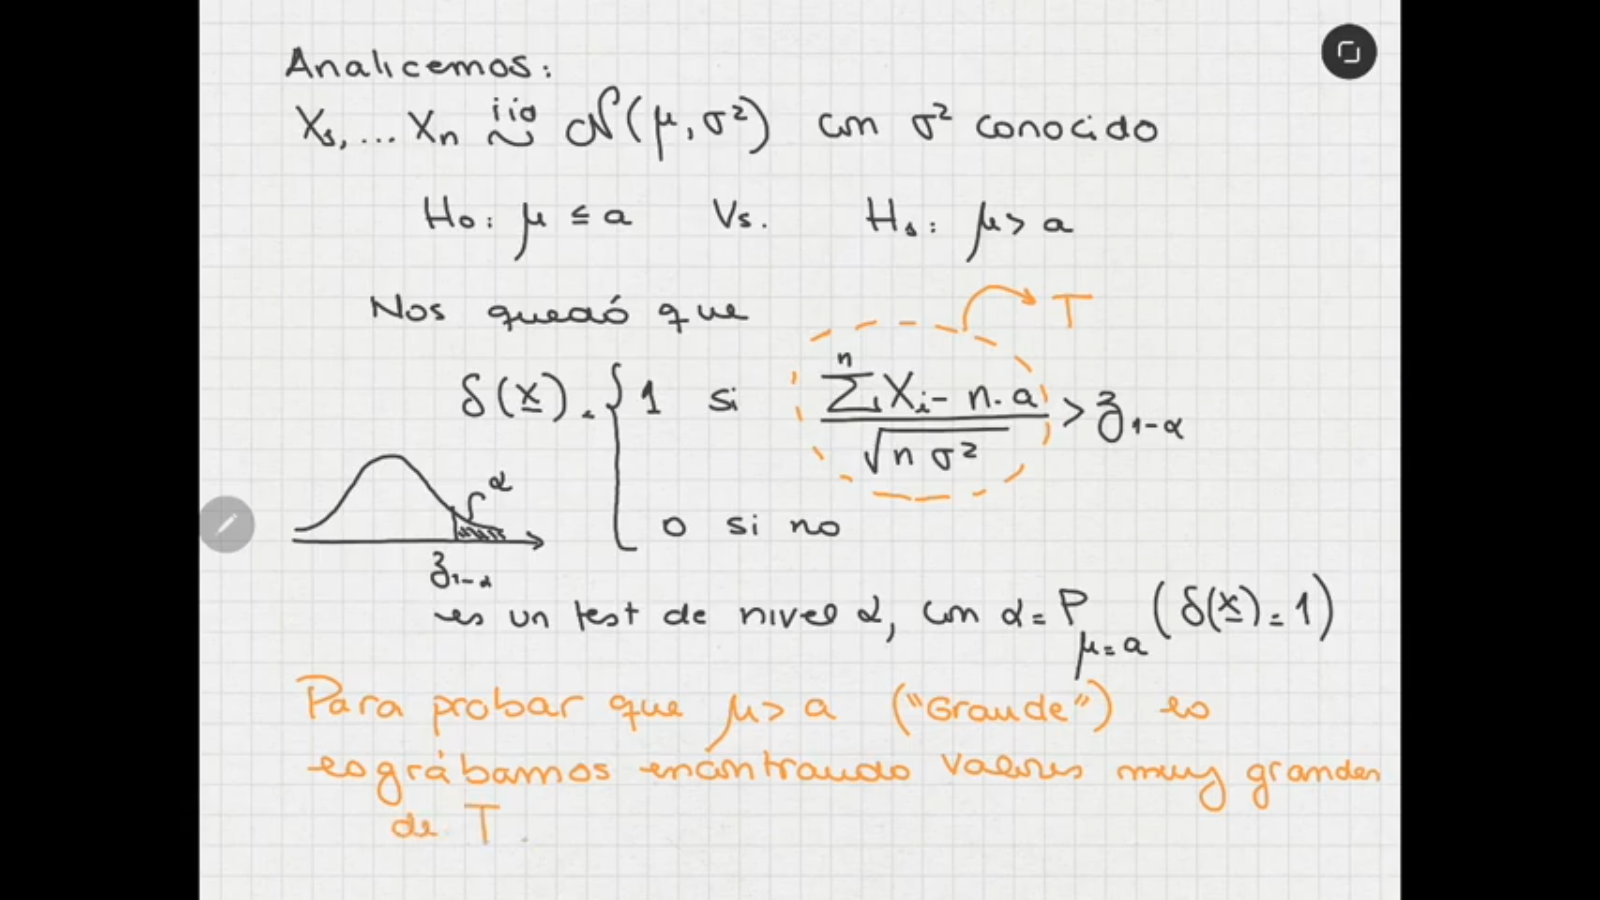 Analicemos:
X₁, ... Xn iid ~ N(μ, σ²) con σ² conocido
H₀: μ ≤ a Vs. H₁: μ > a
Nos quedó que
T
δ(x) = { 1 si (∑₁ⁿ Xi - n.a) / √(n σ²) > z₁₋α
α
0 si no
z₁₋α
es un test de nivel α, con α = P μ=a (δ(x) = 1)
Para probar que μ > a ("Grande") lo
lográbamos encontrando valores muy grandes
de T